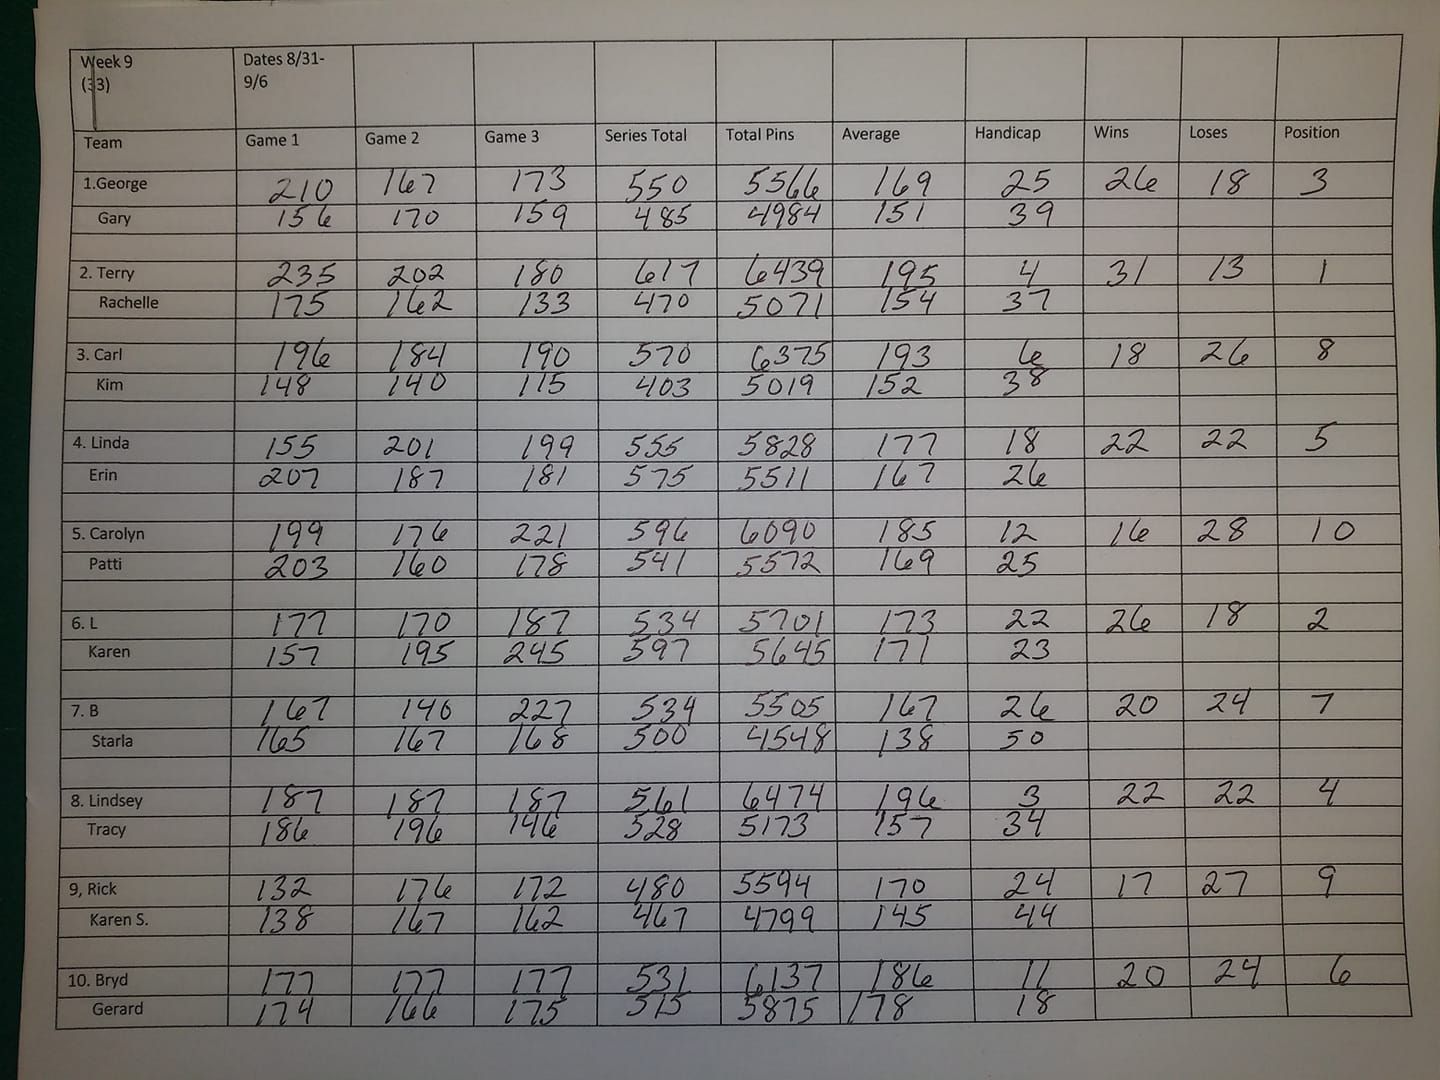 Week 9 Dates 8/31-
(33) 9/6
Team Game 1 Game 2 Game 3 Series Total Total Pins Average Handicap Wins Loses Position
1.George 210 167 173 550 5566 169 25 26 18 3
Gary 156 170 159 485 4984 151 39
2. Terry 235 202 180 617 6439 195 4 31 13 1
Rachelle 175 162 133 470 5071 154 37
3. Carl 196 184 190 570 6375 193 6 18 26 8
Kim 148 140 115 403 5019 152 38
4. Linda 155 201 199 555 5828 177 18 22 22 5
Erin 207 187 181 575 5511 167 26
5. Carolyn 199 176 221 596 6090 185 12 16 28 10
Patti 203 160 178 541 5572 169 25
6. L 177 170 187 534 5701 173 22 26 18 2
Karen 157 195 245 597 5645 171 23
7. B 167 140 227 534 5505 167 26 20 24 7
Starla 165 167 168 500 4548 138 50
8. Lindsey 187 187 187 561 6474 196 3 22 22 4
Tracy 186 196 146 528 5173 157 34
9, Rick 132 176 172 480 5594 170 24 17 27 9
Karen S. 138 167 162 467 4799 145 44
10. Bryd 177 177 177 531 6137 186 11 20 24 6
Gerard 174 166 175 515 5875 178 18